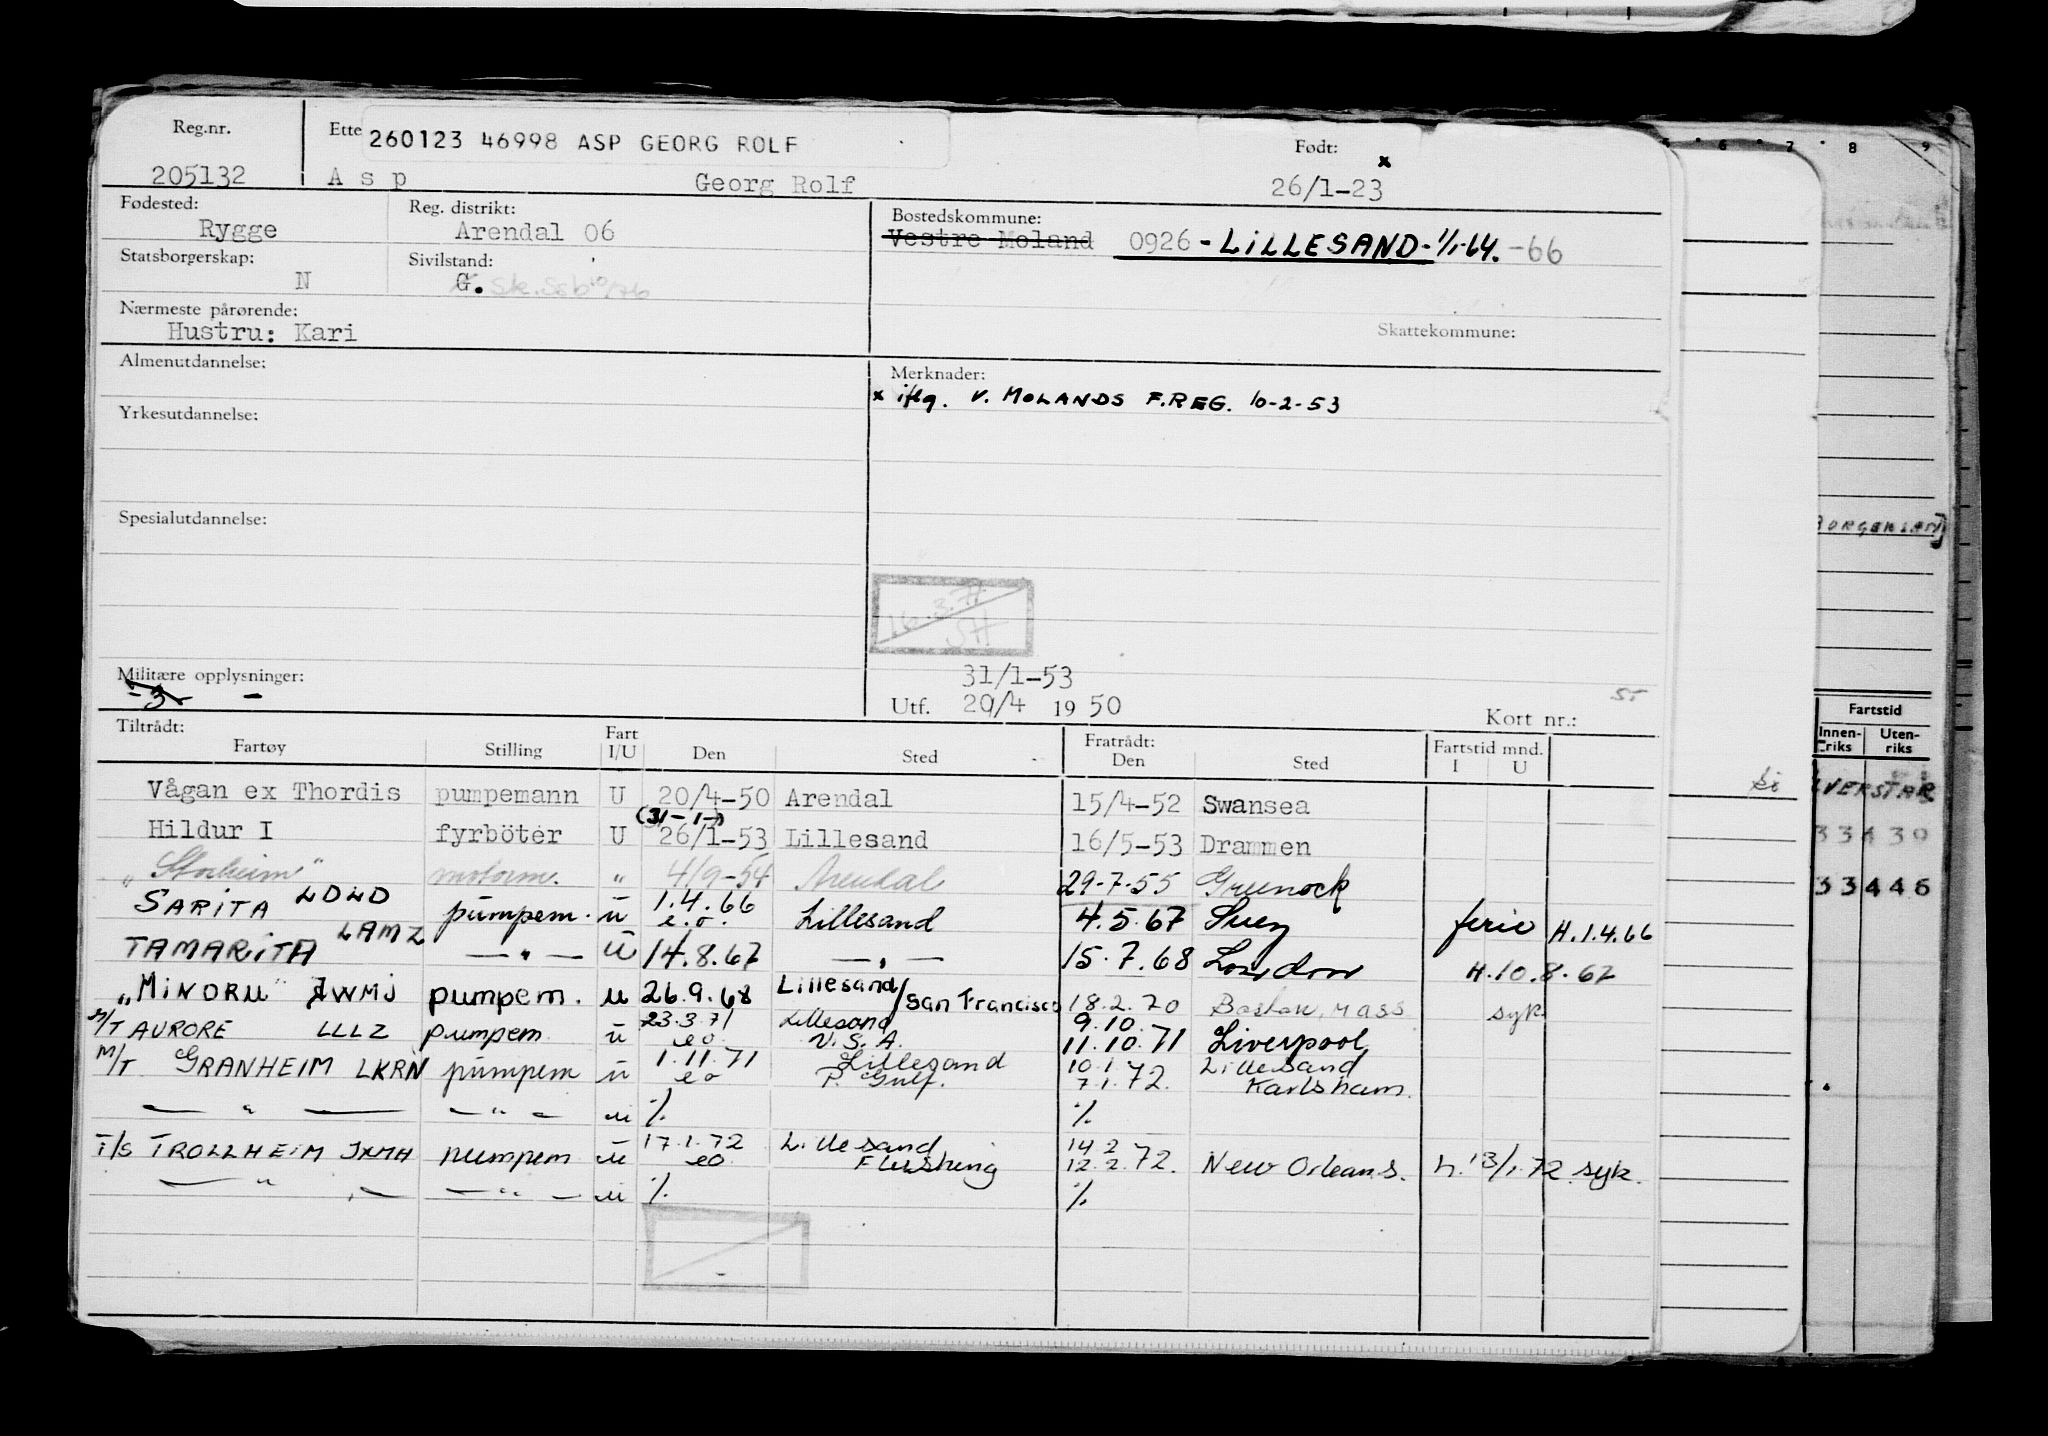 Reg.nr. Ette 260123 46998 ASP GEORG ROLF Født: x
205132 Asp Georg Rolf 26/1-23
Fødested: Reg. distrikt: Bostedskommune:
Rygge Arendal 06 Vestre Moland 0926 - LILLESAND - 1/1-64. -66
Statsborgerskap: Sivilstand:
N G.
Nærmeste pårørende:
Hustru: Kari Skattekommune:
Almenutdannelse: Merknader:
x iflg. V. MOLANDS F.REG. 10-2-53
Yrkesutdannelse:
Spesialutdannelse:
16.3.77
SH
Militære opplysninger: 31/1-53
- 3 - Utf. 20/4 1950 Kort nr.:
Tiltrådt: Fratrådt:
Fartøy Stilling Fart I/U Den Sted Den Sted Fartstid mnd. I U
Vågan ex Thordis pumpemann U 20/4-50 Arendal 15/4-52 Swansea
(31-1-)
Hildur I fyrböter U 26/1-53 Lillesand 16/5-53 Drammen
motorm. " 4/9-54 Arendal 29-7-55 Grunock
SARITA LDLD pumpem. u 1.4.66 e.o. Lillesand 4.5.67 Suez ferie H.1.4.66
TAMARITA LAMZ — " — u 14.8.67 — " — 15.7.68 London H.10.8.67
"MINORU" JWMJ pumpem. u 26.9.68 Lillesand/San Francisco 18.2.70 Boston, MASS syk
M/T AURORE LLLZ pumpem u 23.3.71 eo Lillesand U.S.A. 9.10. 11.10.71 Liverpool
M/T GRANHEIM LKRN pumpem u 1.11.71 eo Lillesand P. Gulf. 10.1 7.1.72. Lillesand Karlshamn.
— " — — " — u % %
T/S TROLLHEIM JXMH pumpem u 17.1.72 eo Lillesand Flushing 14.2 12.2.72. New Orleans. h. 13/1.72. syk.
— " — — " — u % %
6 7 8 9
Fartstid
Innen-riks Uten-riks
33439
33446